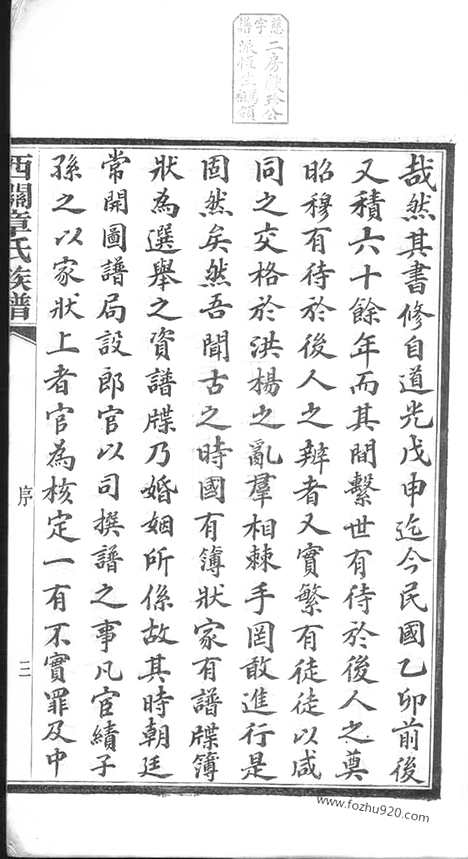 哉然其書修自道光戊申迄今民國乙卯前後
又積六十餘年而其間繫世有待於後人之奠
昭穆有待於後人之辨者又實繁有徒徒以咸
同之交格於洪楊之亂羣相棘手罔敢進行是
固然矣然吾聞古之時國有簿狀家有譜牒簿
狀為選舉之資譜牒乃婚姻所係故其時朝廷
常開圖譜局設郎官以司撰譜之事凡宦績子
孫之以家狀上者官為核定一有不實罪及中
西關章氏族譜
序
三
www.fozhu920.com